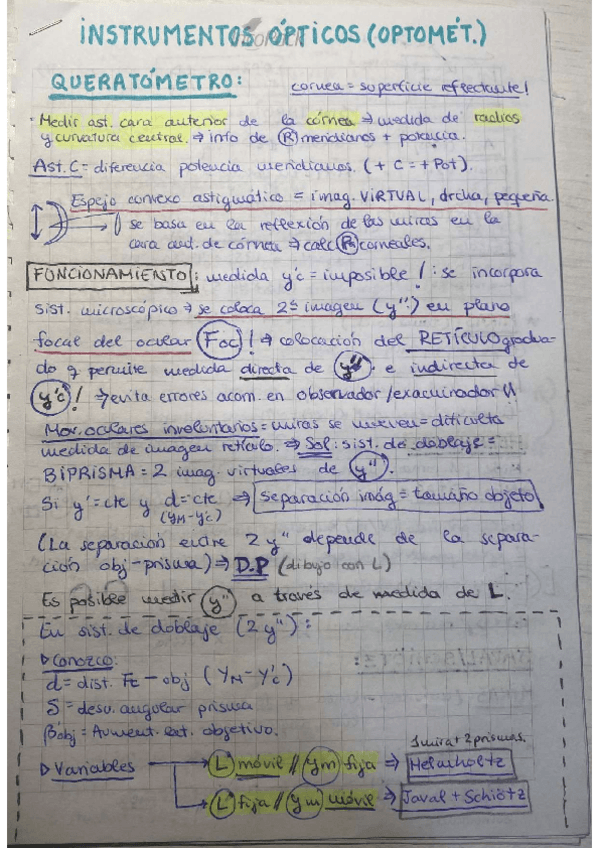 INSTRUMENTOS ÓPTICOS (OPTOMÉT.)
QUERATÓMETRO:
cornea = superficie reflectante!
· Medir ast. cara anterior de la córnea ⇒ medida de radios
y curvatura central. ⇒ info de R meridianos + potencia.
Ast. C = diferencia potencia meridianos. (+ C = + Pot).
Espejo convexo astigmático = imag. VIRTUAL, drcha, pequeña.
se basa en la reflexión de las miras en la
cara ant. de córnea ⇒ calc R corneales.
FUNCIONAMIENTO: medida y'c = imposible!: se incorpora
sist. microscópico ⇒ se coloca 2ª imagen (y'') en plano
focal del ocular Foc! ⇒ colocación del RETÍCULO gradua-
do q permite medida directa de y'' e indirecta de
y'c! ⇒ evita errores acom. en observador/examinador
Mov. oculares involuntarios = miras se mueven = dificulta
medida de imagen retículo. ⇒ Sol: sist. de doblaje =
BIPRISMA = 2 imag. virtuales de y''.
Si y' = cte y d = cte ⇒ Separación imág = tamaño objeto
(yM - y'c)
(La separación entre 2 y'' depende de la separa-
ción obj-prisma) ⇒ D.P (dibujo con L)
Es posible medir y'' a través de medida de L.
En sist. de doblaje (2 y''):
▷ Conozco:
d = dist. - obj (YM - Y'c)
δ = desv. angular prisma
β'obj = Aument. lat. objetivo.
1 mira + 2 prismas.
▷ Variables → L móvil // ym fija ⇒ Helmholtz
L fija // ym móvil ⇒ Javal + Schiötz